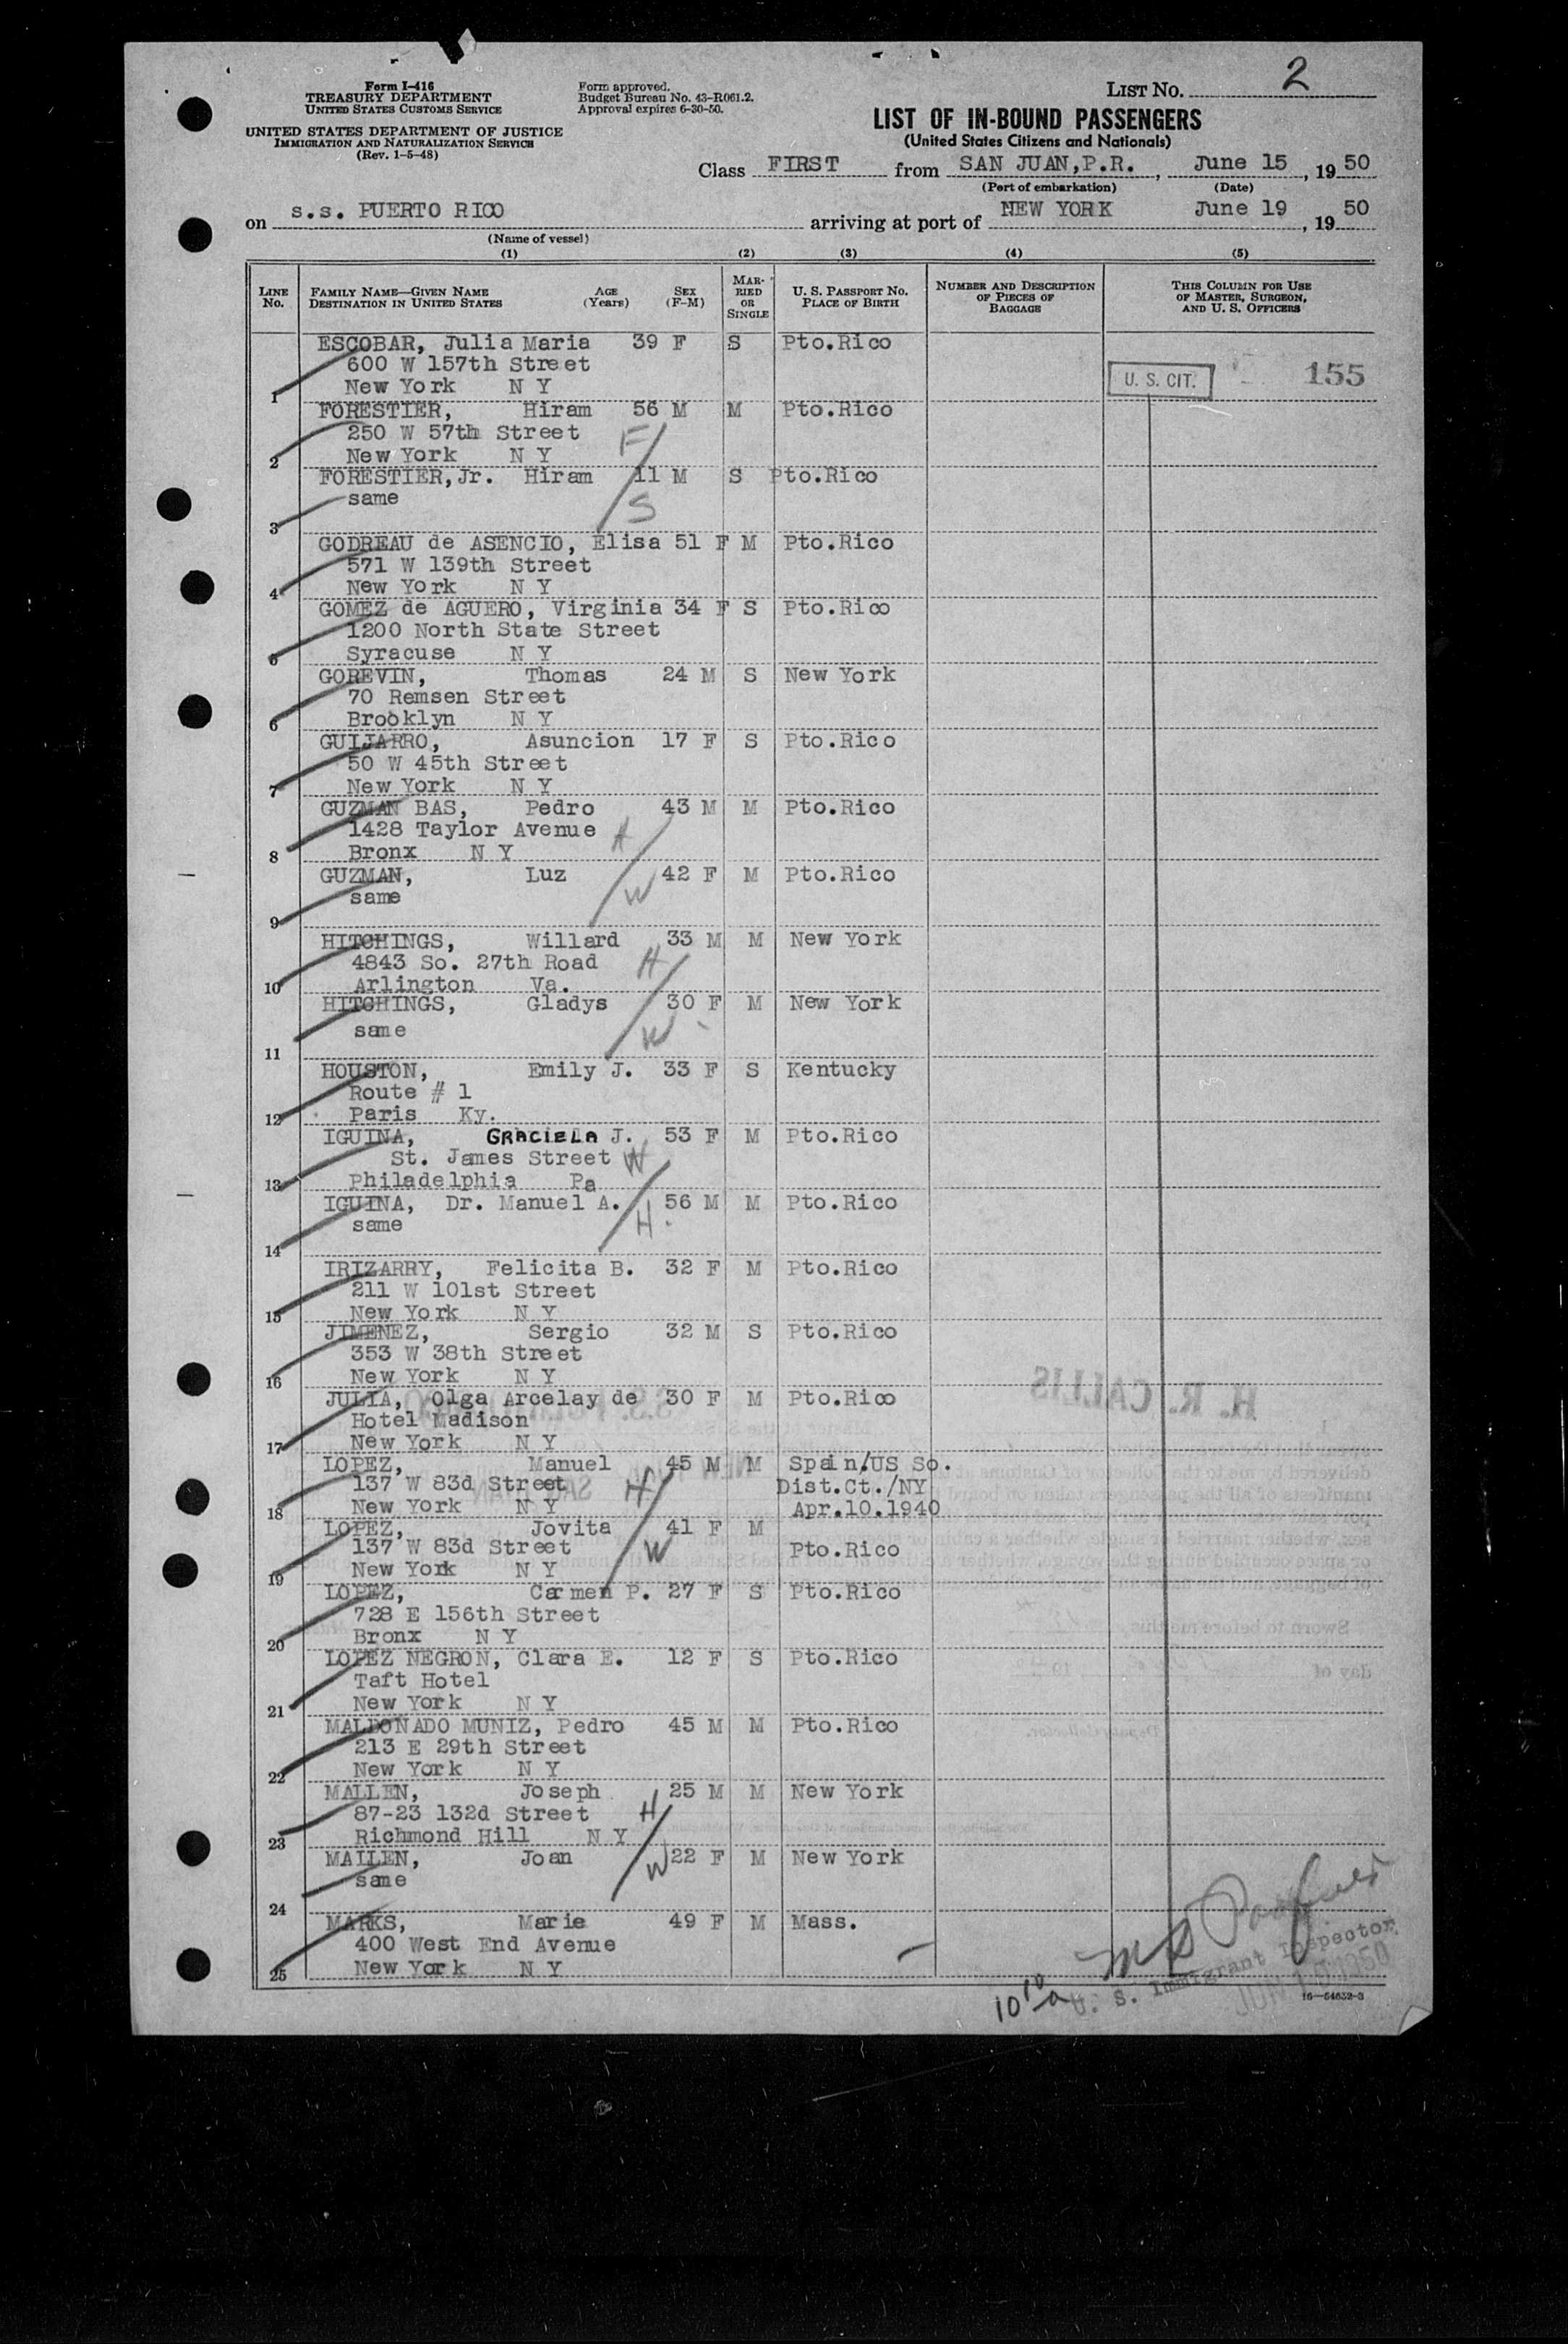 Form I-416
TREASURY DEPARTMENT
UNITED STATES CUSTOMS SERVICE
UNITED STATES DEPARTMENT OF JUSTICE
IMMIGRATION AND NATURALIZATION SERVICE
(Rev. 1-5-48)
Form approved.
Budget Bureau No. 43-R061.2.
Approval expires 6-30-50.
LIST NO. 2
LIST OF IN-BOUND PASSENGERS
(United States Citizens and Nationals)
Class FIRST from SAN JUAN, P.R., June 15, 1950
(Port of embarkation) (Date)
on s.s. PUERTO RICO arriving at port of NEW YORK June 19, 1950
(Name of vessel)
(1) (2) (3) (4) (5)
LINE NO.
FAMILY NAME—GIVEN NAME
DESTINATION IN UNITED STATES
AGE (Years)
SEX (F-M)
MARRIED OR SINGLE
U. S. PASSPORT NO.
PLACE OF BIRTH
NUMBER AND DESCRIPTION OF PIECES OF BAGGAGE
THIS COLUMN FOR USE OF MASTER, SURGEON, AND U. S. OFFICERS
ESCOBAR, Julia Maria 39 F S Pto.Rico
600 W 157th Street
U. S. CIT. 155
1 New York N Y
FORESTIER, Hiram 56 M M Pto.Rico
250 W 57th Street F
2 New York N Y
FORESTIER, Jr. Hiram 11 M S Pto.Rico
same S
3
GODREAU de ASENCIO, Elisa 51 F M Pto.Rico
571 W 139th Street
4 New York N Y
GOMEZ de AGUERO, Virginia 34 F S Pto.Rico
1200 North State Street
5 Syracuse N Y
GOREVIN, Thomas 24 M S New York
70 Remsen Street
6 Brooklyn N Y
GUIJARRO, Asuncion 17 F S Pto.Rico
50 W 45th Street
7 New York N Y
GUZMAN BAS, Pedro 43 M M Pto.Rico
1428 Taylor Avenue H
8 Bronx N Y
GUZMAN, Luz 42 F M Pto.Rico
same W
9
HITCHINGS, Willard 33 M M New York
4843 So. 27th Road H
10 Arlington Va.
HITCHINGS, Gladys 30 F M New York
same W
11
HOUSTON, Emily J. 33 F S Kentucky
Route # 1
12 Paris Ky.
IGUINA, GRACIELA J. 53 F M Pto.Rico
St. James Street W
13 Philadelphia Pa
IGUINA, Dr. Manuel A. 56 M M Pto.Rico
same H.
14
IRIZARRY, Felicita B. 32 F M Pto.Rico
211 W 101st Street
15 New York N Y
JIMENEZ, Sergio 32 M S Pto.Rico
353 W 38th Street
16 New York N Y
JULIA, Olga Arcelay de 30 F M Pto.Rico
Hotel Madison
17 New York N Y
LOPEZ, Manuel 45 M M Spain/US So.
137 W 83d Street H Dist.Ct./NY
18 New York N Y Apr.10.1940
LOPEZ, Jovita 41 F M
137 W 83d Street W Pto.Rico
19 New York N Y
LOPEZ, Carmen P. 27 F S Pto.Rico
728 E 156th Street
20 Bronx N Y
LOPEZ NEGRON, Clara E. 12 F S Pto.Rico
Taft Hotel
21 New York N Y
MALDONADO MUNIZ, Pedro 45 M M Pto.Rico
213 E 29th Street
22 New York N Y
MALLEN, Joseph 25 M M New York
87-23 132d Street H
23 Richmond Hill N Y
MALLEN, Joan W 22 F M New York
same
24
MARKS, Marie 49 F M Mass.
400 West End Avenue
25 New York N Y
10 10 a U. S. Immigrant Inspector
16—54652-3